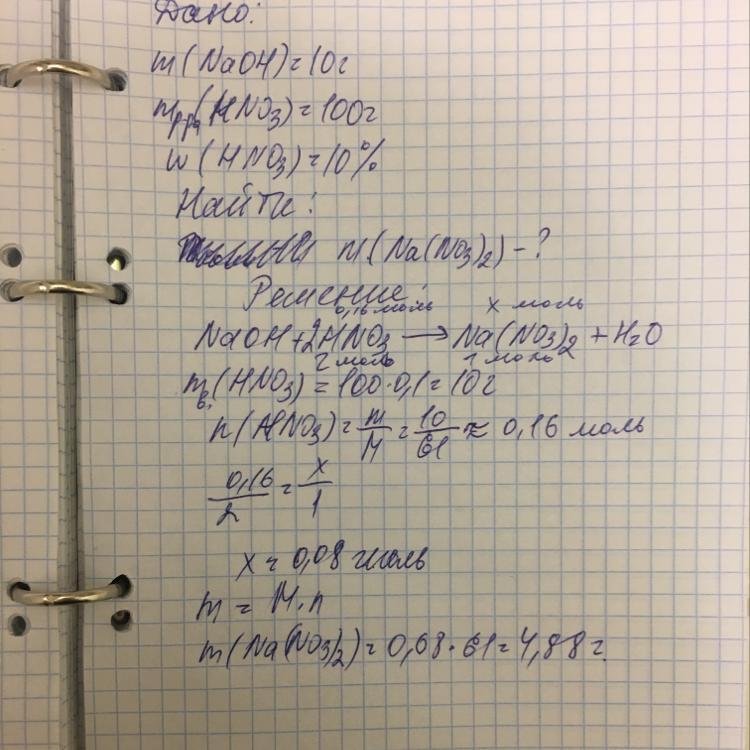 Дано:
m(NaOH)=10г
mр-ра(HNO3)=100г
w(HNO3)=10%
Найти:
m(Na(NO3)2)-?
Решение:
0,16 моль x моль
NaOH+2HNO3→Na(NO3)2+H2O
2 моль 1 моль
mв.(HNO3)=100·0,1=10г
n(HNO3)=m/M=10/61≈0,16 моль
0,16/2=x/1
x=0,08 моль
m=M·n
m(Na(NO3)2)=0,08·61=4,88г.